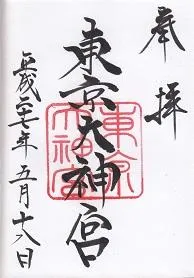 奉拝
東京大神宮
平成二十一年五月十八日
東京
大神宮